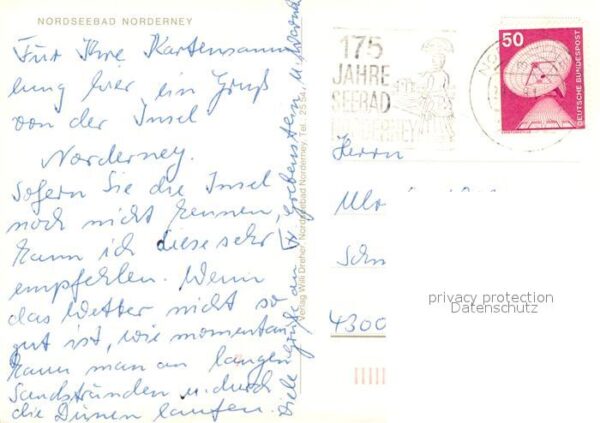 NORDSEEBAD NORDERNEY
Für Ihre Kartensamm
lung hier ein Gruß
von der Insel
Norderney.
Sofern Sie die Insel
noch nicht kennen,
kann ich diese sehr
empfehlen. Wenn
das Wetter nicht so
gut ist, wie momentan
kann man an langen
Sandstränden u. durch
die Dünen laufen.
Viele Grüße an
Verlag Willi Dreher, Nordseebad Norderney, Tel. 2554
175
JAHRE
SEEBAD
NORDERNEY
50
DEUTSCHE BUNDESPOST
Herrn
4300
privacy protection
Datenschutz